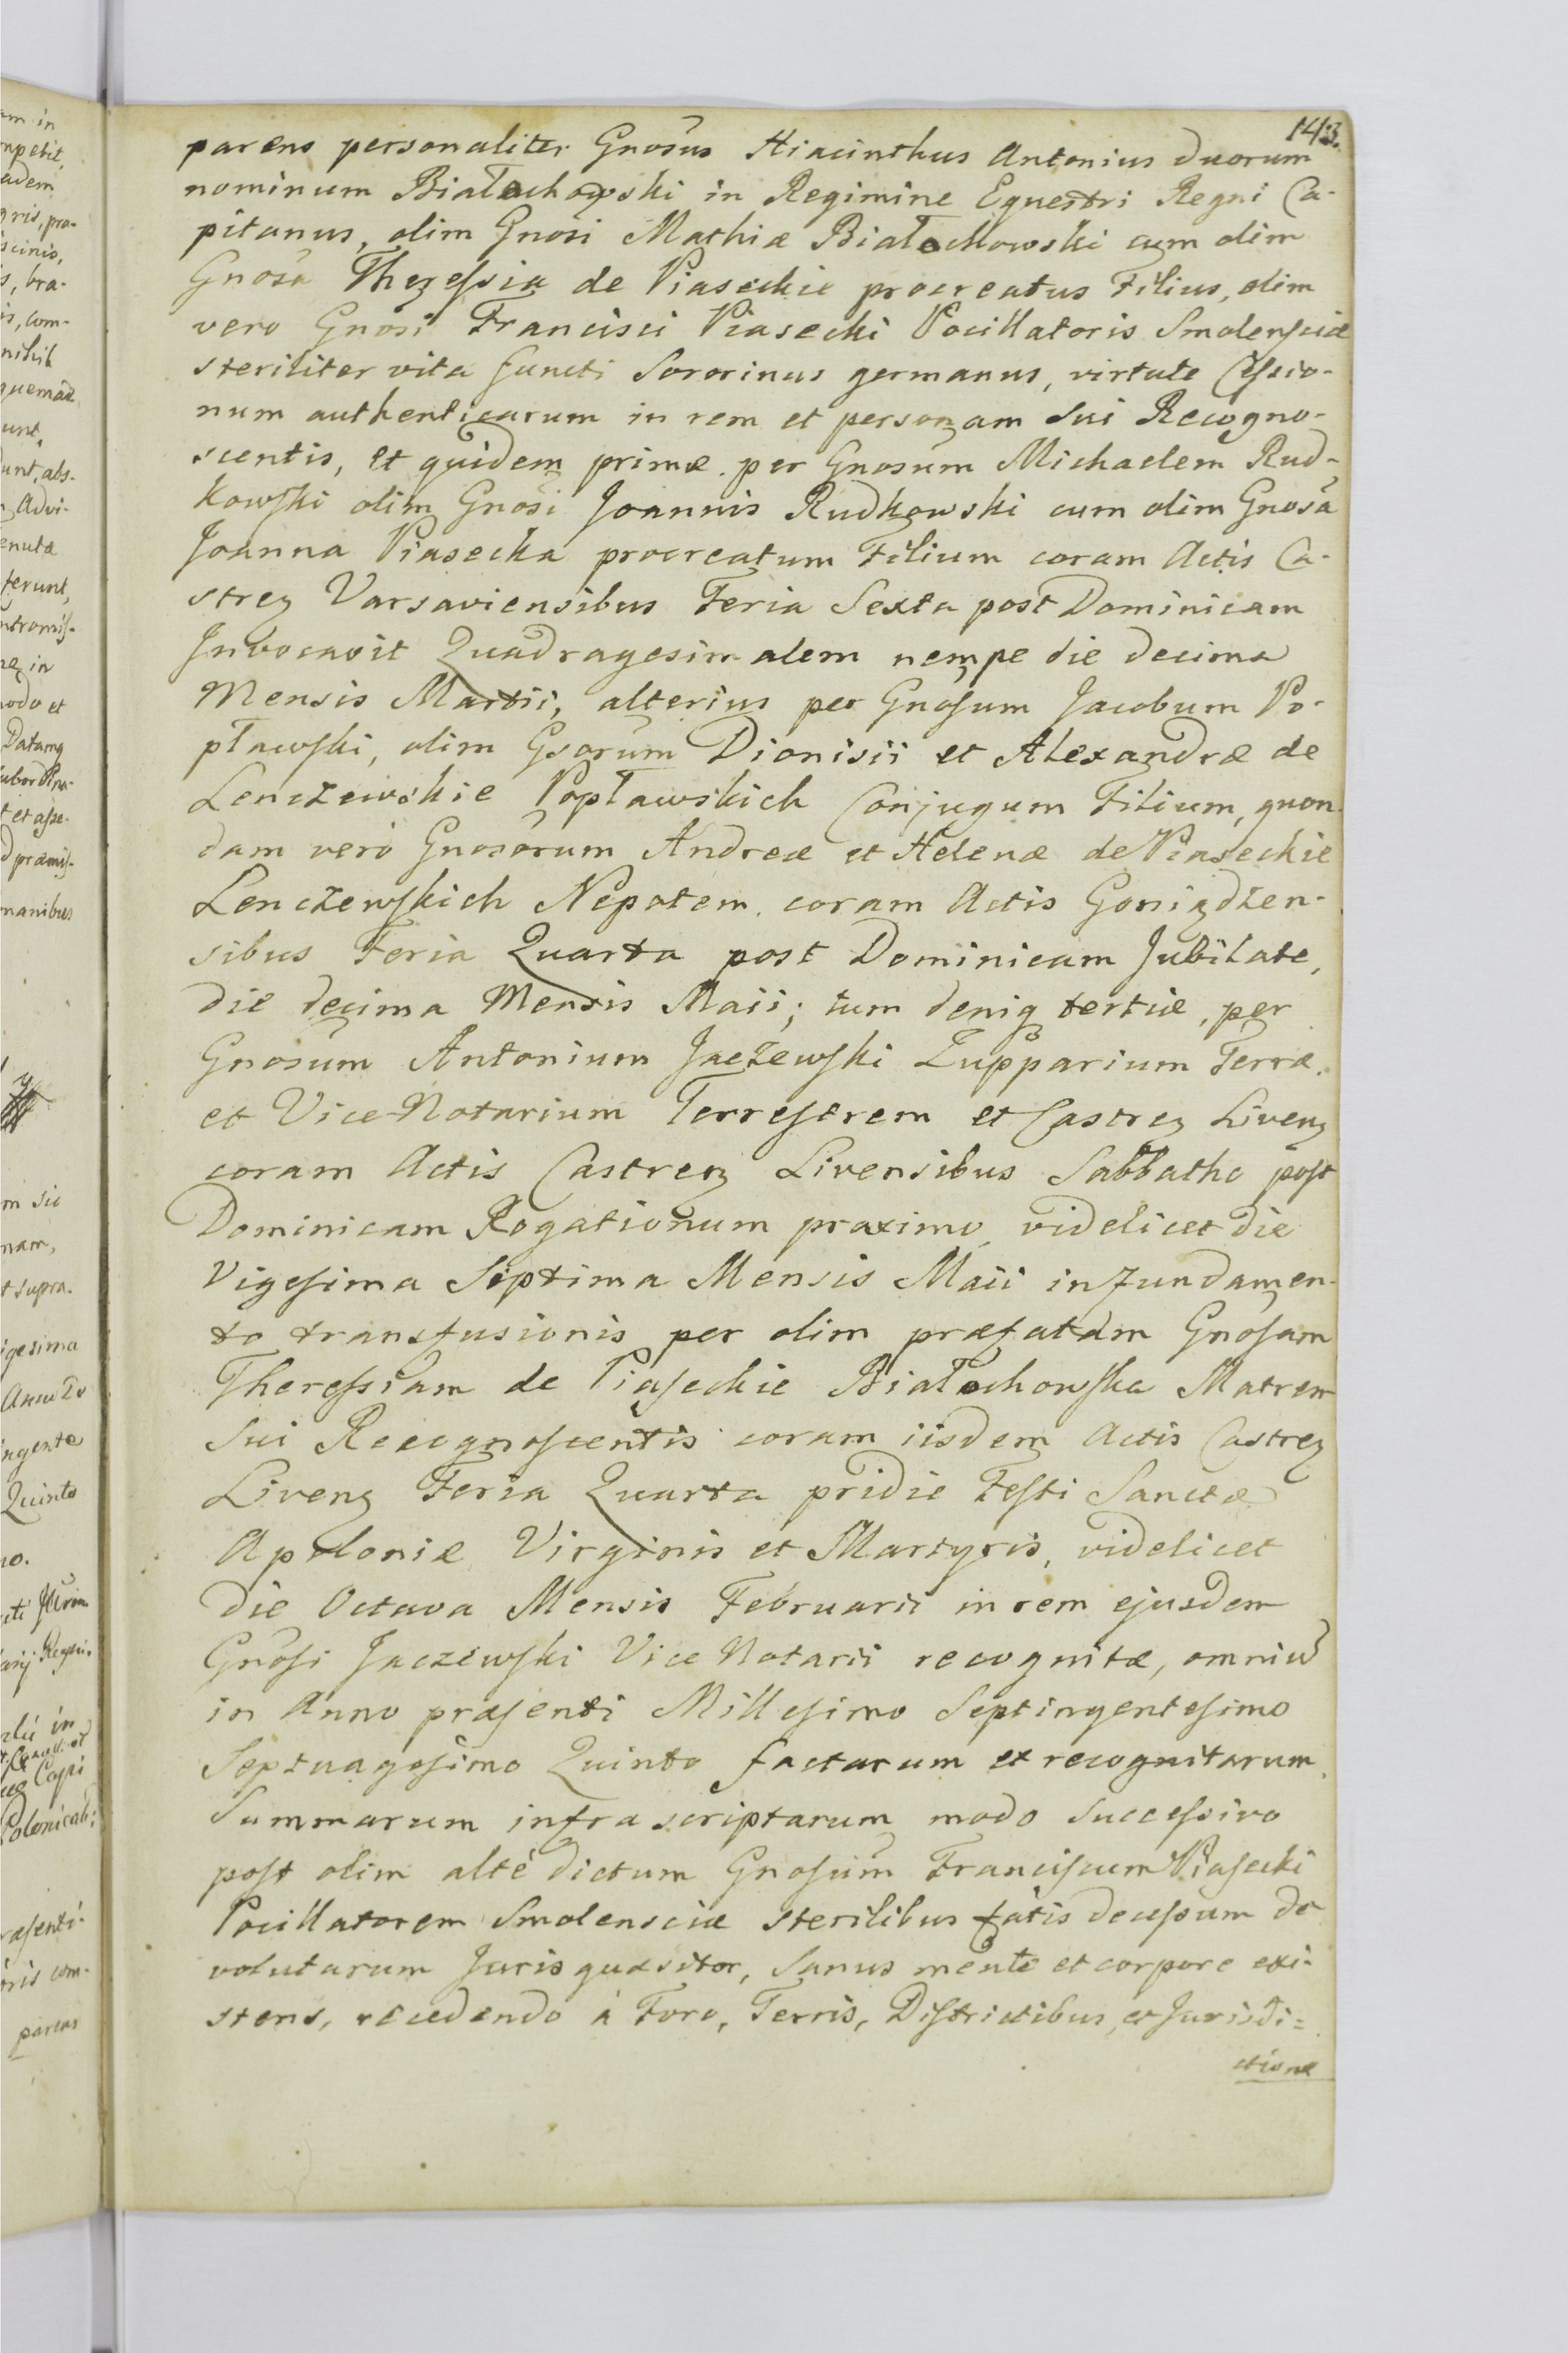 143.
parens personaliter Gnosus Hiacinthus Antonius duorum
nominum Białochowski in Regimine Equestri Regni Ca-
pitanus, olim Gnosi Mathiæ Białochowski cum olim
Gnosa Theressia de Piaseckie procreatus Filius, olim
vero Gnosi Francisci Piasecki Pocillatoris Smolensciæ
steriliter vita functi Sororinus germanus, virtute Cessio-
num authenticarum in rem et personam sui Recogno-
scentis, et quidem primæ per Gnosum Michaelem Rud-
kowski olim Gnosi Joannis Rudkowski cum olim Gnosa
Joanna Piasecka procreatum Filium coram Actis Ca-
strez Varsaviensibus Feria Sexta post Dominicam
Invocavit Quadragesimalem nempe die decima
Mensis Martii, alterius per Gnosum Jacobum Po-
pławski, olim Gsorum Dionisii et Alexandræ de
Lenczewskie Popławskich Conjugum Filium, quon-
dam verò Gnosorum Andreæ et Helenæ de Piaseckie
Lenczewskich Nepotem, coram Actis Goniądzen-
sibus Feria Quarta post Dominicam Jubilate,
die decima Mensis Maii; tum deniq tertiæ, per
Gnosum Antonium Jaczewski Zupparium Terræ,
et Vice-Notarium Terrestrem et Castrez Livenz
coram Actis Castrenz Livensibus Sabbatho post
Dominicam Rogationum proximo, videlicet die
Vigesima Septima Mensis Maii in fundamen-
to transfusionis per olim præfatam Gnosam
Theressiam de Piaseckie Białochowska Matrem
sui Recognoscentis coram iisdem Actis Castrez
Livenz Feria Quarta pridie Festi Sanctæ
Apoloniæ Virginis et Martyris, videlicet
die Octava Mensis Februarii in rem ejusdem
Gnosi Jaczewski Vice Notarii recognitæ, omniu
in Anno præsenti Millesimo Septingentesimo
Septuagesimo Quinto factarum et recognitarum.
Summarum infrascriptarum modo successivo
post olim altè dictum Gnosum Franciscum Piasecki
Pocillatorem Smolensciæ sterilibus fatis decessum de
volutarum Juris quæsitor, Sanus mente et corpore exi-
stens, recedendo à Foro, Terris, Districtibus, et Jurisdi=
ctione